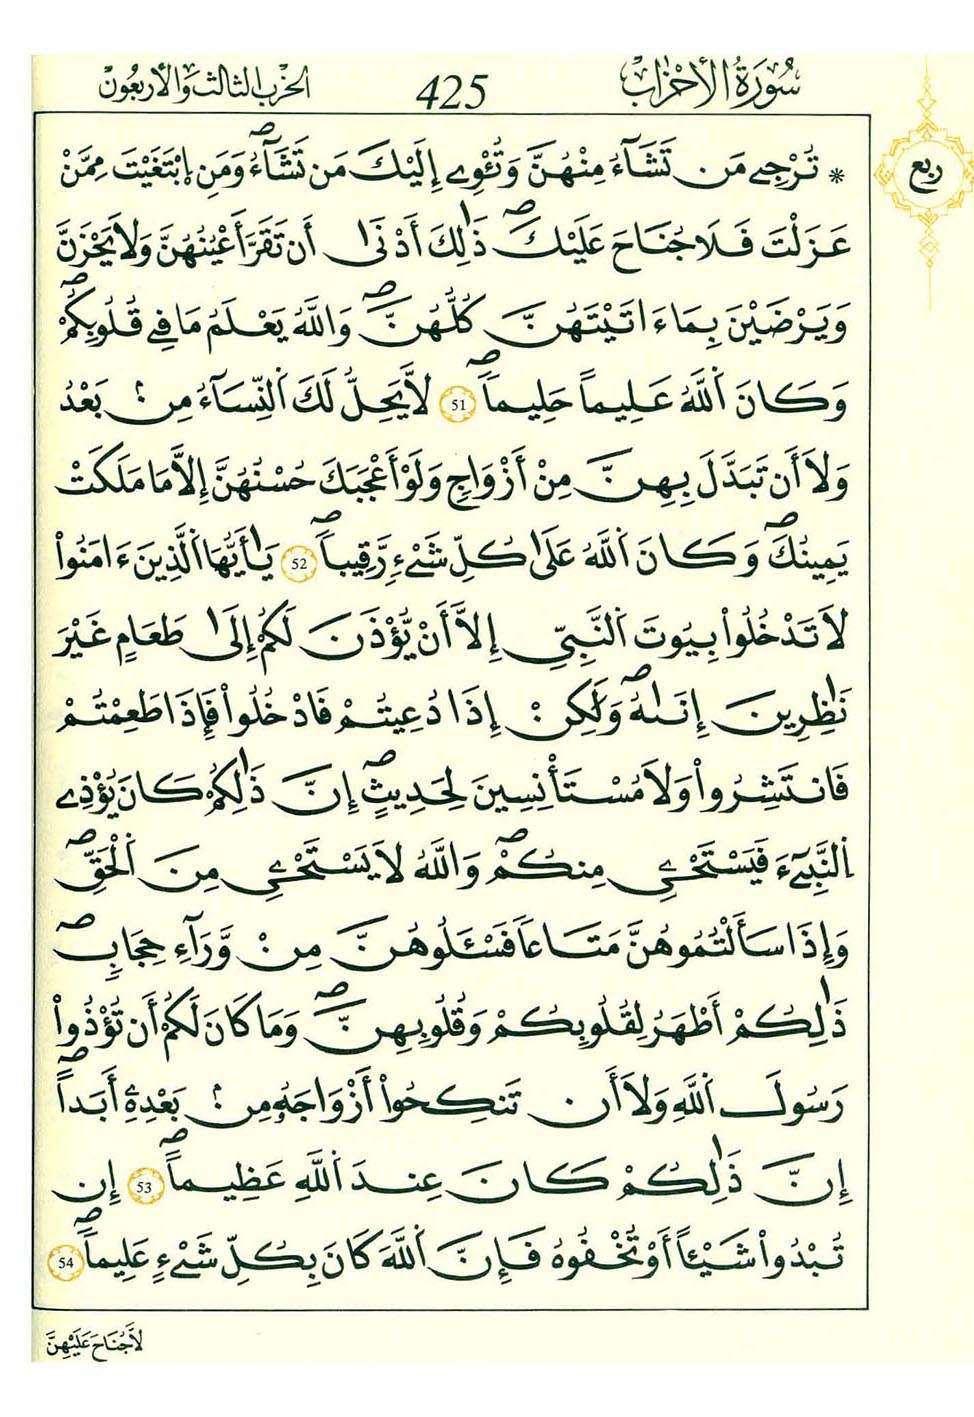 سُورَةُ الأَحْزَابِ 425 الحزب الثالث والأربعون
ربع
* تُرْجِے مَن تَشَآءُ مِنْهُنَّ وَتُـْٔوِے إِلَيْكَ مَن تَشَآءُۖ وَمَنِ اِبْتَغَيْتَ مِمَّنْ
عَزَلْتَ فَلَا جُنَاحَ عَلَيْكَۖ ذَٰلِكَ أَدْنَىٰ أَن تَقَرَّ أَعْيُنُهُنَّ وَلَا يَحْزَنَّ
وَيَرْضَيْنَ بِمَآ ءَاتَيْتَهُنَّ كُلُّهُنَّۖ وَاللَّهُ يَعْلَمُ مَا فِے قُلُوبِكُمْۖ
وَكَانَ اَ۬للَّهُ عَلِيماً حَلِيماًۖ 51 لَّا يَحِلُّ لَكَ اَ۬لنِّسَآءُ مِنۢ بَعْدُ
وَلَا أَن تَبَدَّلَ بِهِنَّ مِنْ أَزْوَاجٍ وَلَوْ أَعْجَبَكَ حُسْنُهُنَّ إِلَّا مَا مَلَكَتْ
يَمِينُكَۖ وَكَانَ اَ۬للَّهُ عَلَىٰ كُلِّ شَےْءٍ رَّقِيباًۖ 52 يَٰأَيُّهَا اَ۬لَّذِينَ ءَامَنُواْ
لَا تَدْخُلُواْ بِيُوتَ اَ۬لنَّبِيِّ إِلَّا أَنْ يُّؤْذَنَ لَكُمْ إِلَىٰ طَعَامٍ غَيْرَ
نَٰظِرِينَ إِنَىٰهُۖ وَلَٰكِنْ إِذَا دُعِيتُمْ فَادْخُلُواْ فَإِذَا طَعِمْتُمْ
فَانتَشِرُواْ وَلَا مُسْتَأْنِسِينَ لِحَدِيثٍۖ إِنَّ ذَٰلِكُمْ كَانَ يُؤْذِے
اِ۬لنَّبِےٓءَ فَيَسْتَحْيِۦ مِنكُمْۖ وَاللَّهُ لَا يَسْتَحْيِۦ مِنَ اَ۬لْحَقِّۖ
وَإِذَا سَأَلْتُمُوهُنَّ مَتَاعاً فَسْـَٔلُوهُنَّ مِنْ وَّرَآءِ حِجَابٍۖ
ذَٰلِكُمْ أَطْهَرُ لِقُلُوبِكُمْ وَقُلُوبِهِنَّۖ وَمَا كَانَ لَكُمْ أَن تُؤْذُواْ
رَسُولَ اَ۬للَّهِ وَلَا أَن تَنكِحُواْ أَزْوَاجَهُۥ مِنۢ بَعْدِهِۦ أَبَداًۖ
إِنَّ ذَٰلِكُمْ كَانَ عِندَ اَ۬للَّهِ عَظِيماًۖ 53 إِن
تُبْدُواْ شَيْـٔاً أَوْ تُخْفُوهُ فَإِنَّ اَ۬للَّهَ كَانَ بِكُلِّ شَےْءٍ عَلِيماًۖ 54
لَّا جُنَاحَ عَلَيْهِنَّ